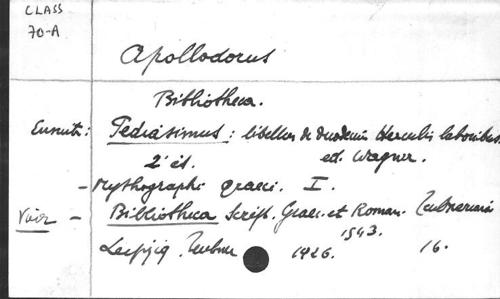 CLASS
70-A
Apollodorus
Bibliotheca.
Ensuite: Pediasimus: libellus de duodecim Herculis laboribus.
2e éd. ed. Wagner.
- Mythographi graeci. I.
Voir - Bibliotheca Script. Graec. et Roman. Teubneriana
1543.
Leipzig. Teubner 1926. 16.